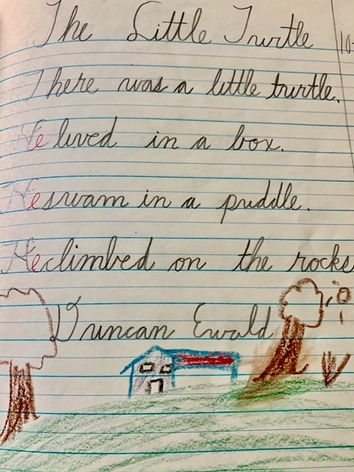 The Little Turtle
There was a little turtle.
He lived in a box.
He swam in a puddle.
He climbed on the rocks
Duncan Ewald